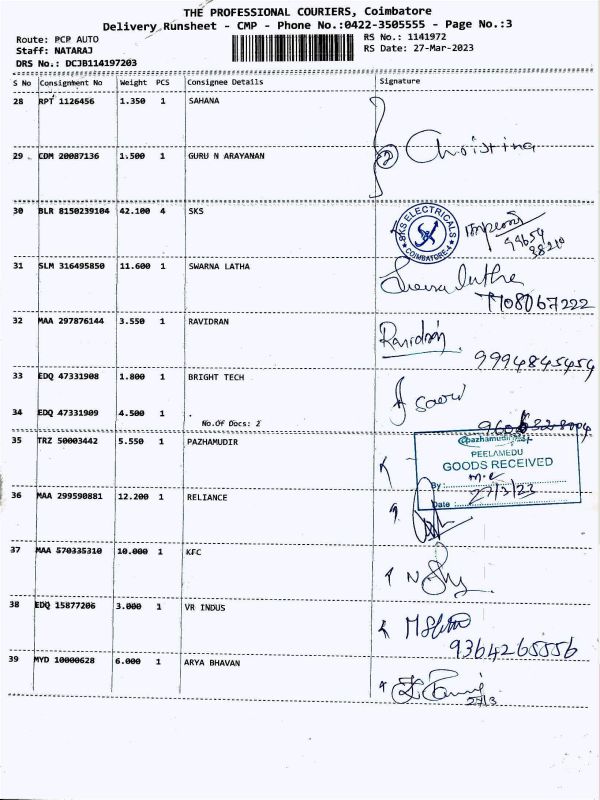 THE PROFESSIONAL COURIERS, Coimbatore
Delivery Runsheet - CMP - Phone No.:0422-3505555 - Page No.:3
Route: PCP AUTO RS No.: 1141972
Staff: NATARAJ RS Date: 27-Mar-2023
DRS No.: DCJB114197203
S No Consignment No Weight PCS Consignee Details Signature
28 RPT 1126456 1.350 1 SAHANA
29 CDM 20087136 1.500 1 GURU N ARAYANAN 2 Christina
30 BLR 8150239104 42.100 4 SKS
SKS ELECTRICALS
COIMBATORE-4
31 SLM 316495850 11.600 1 SWARNA LATHA
7708067222
32 MAA 297876144 3.550 1 RAVIDRAN Ravidran
9994845454
33 EDQ 47331908 1.800 1 BRIGHT TECH
34 EDQ 47331909 4.500 1 .
No.Of Docs: 2
35 TRZ 50003442 5.550 1 PAZHAMUDIR
pazhamudir
PEELAMEDU
GOODS RECEIVED
By:
Date 27/3/23
36 MAA 299590881 12.200 1 RELIANCE
37 MAA 570335310 10.000 1 KFC
38 EDQ 15877206 3.000 1 VR INDUS
9364265556
39 MYD 10000628 6.000 1 ARYA BHAVAN
27/3